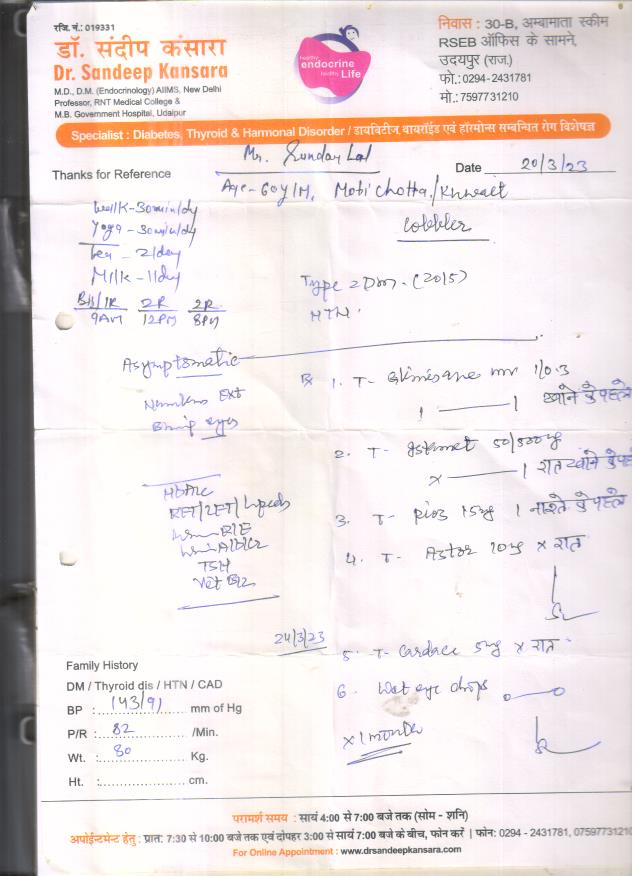 रजि. नं.: 019331
डॉ. संदीप कंसारा
Dr. Sandeep Kansara
M.D., D.M. (Endocrinology) AIIMS, New Delhi
Professor, RNT Medical College &
M.B. Government Hospital, Udaipur
healthy
endocrine
healthy Life
निवास : 30-B, अम्बामाता स्कीम
RSEB ऑफिस के सामने,
उदयपुर (राज.)
फो.:0294-2431781
मो.:7597731210
Specialist : Diabetes, Thyroid & Harmonal Disorder / डायबिटीज, थायरॉइड एवं हॉरमोन्स सम्बन्धित रोग विशेषज्ञ
Thanks for Reference
Mr. Sunday Lal
Date 20/3/23
Age - 60y/M, Mobi
Walk-30min/dy
Yoga-30min/dy
Tea - 2/day
Milk-1/dy
2R 2R
9AM 12PM 8PM
Cobbler
Type 2 Dm. (2015)
HTN.
Asymptomatic
Numbness Ext
eyes
Rx 1. T- mr 1/0.3
1 1 खाने से पहले
2. T- Istamet 50/500mg
x 1 रात खाने से पहले
3. T- Pioz 15mg 1 नाश्ते से पहले
4. T- Astor 10mg x रात
HbA1c
RFT/LFT/Lipids
TSH
Vit B12
24/3/23
5. T- Cardace 5mg x रात
6. Wet eye drops
x 1 month
Family History
DM / Thyroid dis / HTN / CAD
BP : 143/91 mm of Hg
P/R : 82 /Min.
Wt. : 80 Kg.
Ht. : cm.
परामर्श समय : सायं 4:00 से 7:00 बजे तक (सोम - शनि)
अपोईन्टमेन्ट हेतु : प्रात: 7:30 से 10:00 बजे तक एवं दोपहर 3:00 से सायं 7:00 बजे के बीच, फोन करें | फोन: 0294 - 2431781, 07597731210
For Online Appointment : www.drsandeepkansara.com